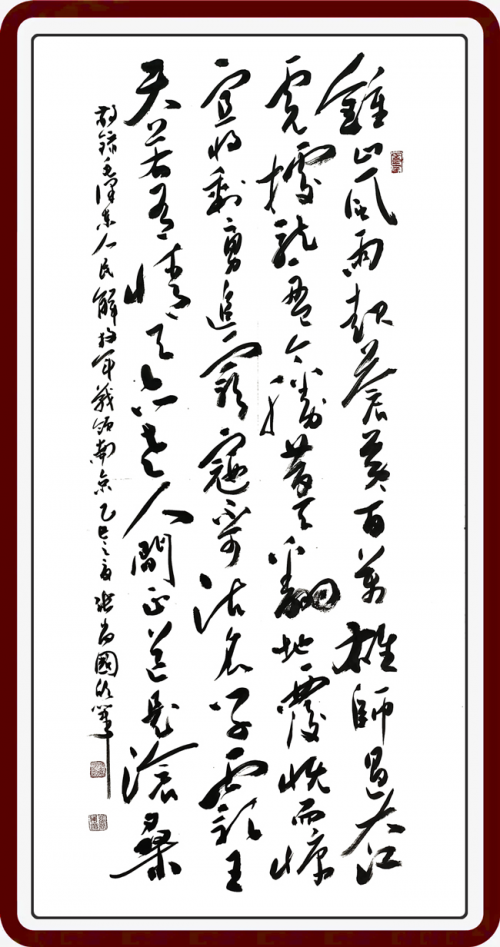 鍾山風雨起蒼黃百萬雄師過大江
虎據龍盤今勝昔天翻地覆慨而慷
宜將剩勇追窮寇不可沽名學霸王
天若有情天亦老人間正道是滄桑
敬錄毛澤東人民解放軍領南京乙巳之夏張尚國